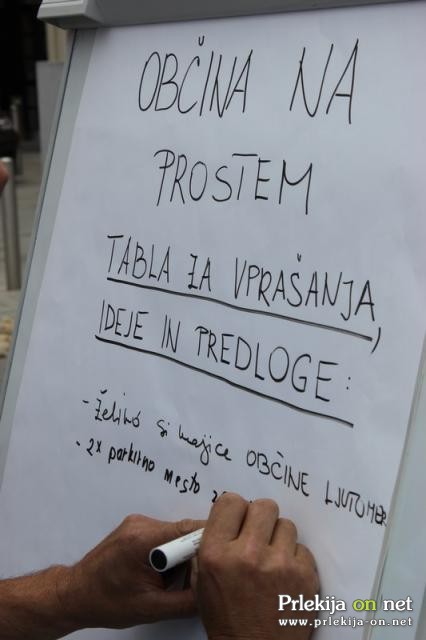 OBČINA NA
PROSTEM
TABLA ZA VPRAŠANJA,
IDEJE IN PREDLOGE:
- Želimo si majice OBČINE LJUTOMER
- 2x parkirno mesto
Prlekija on net
www.prlekija-on.net